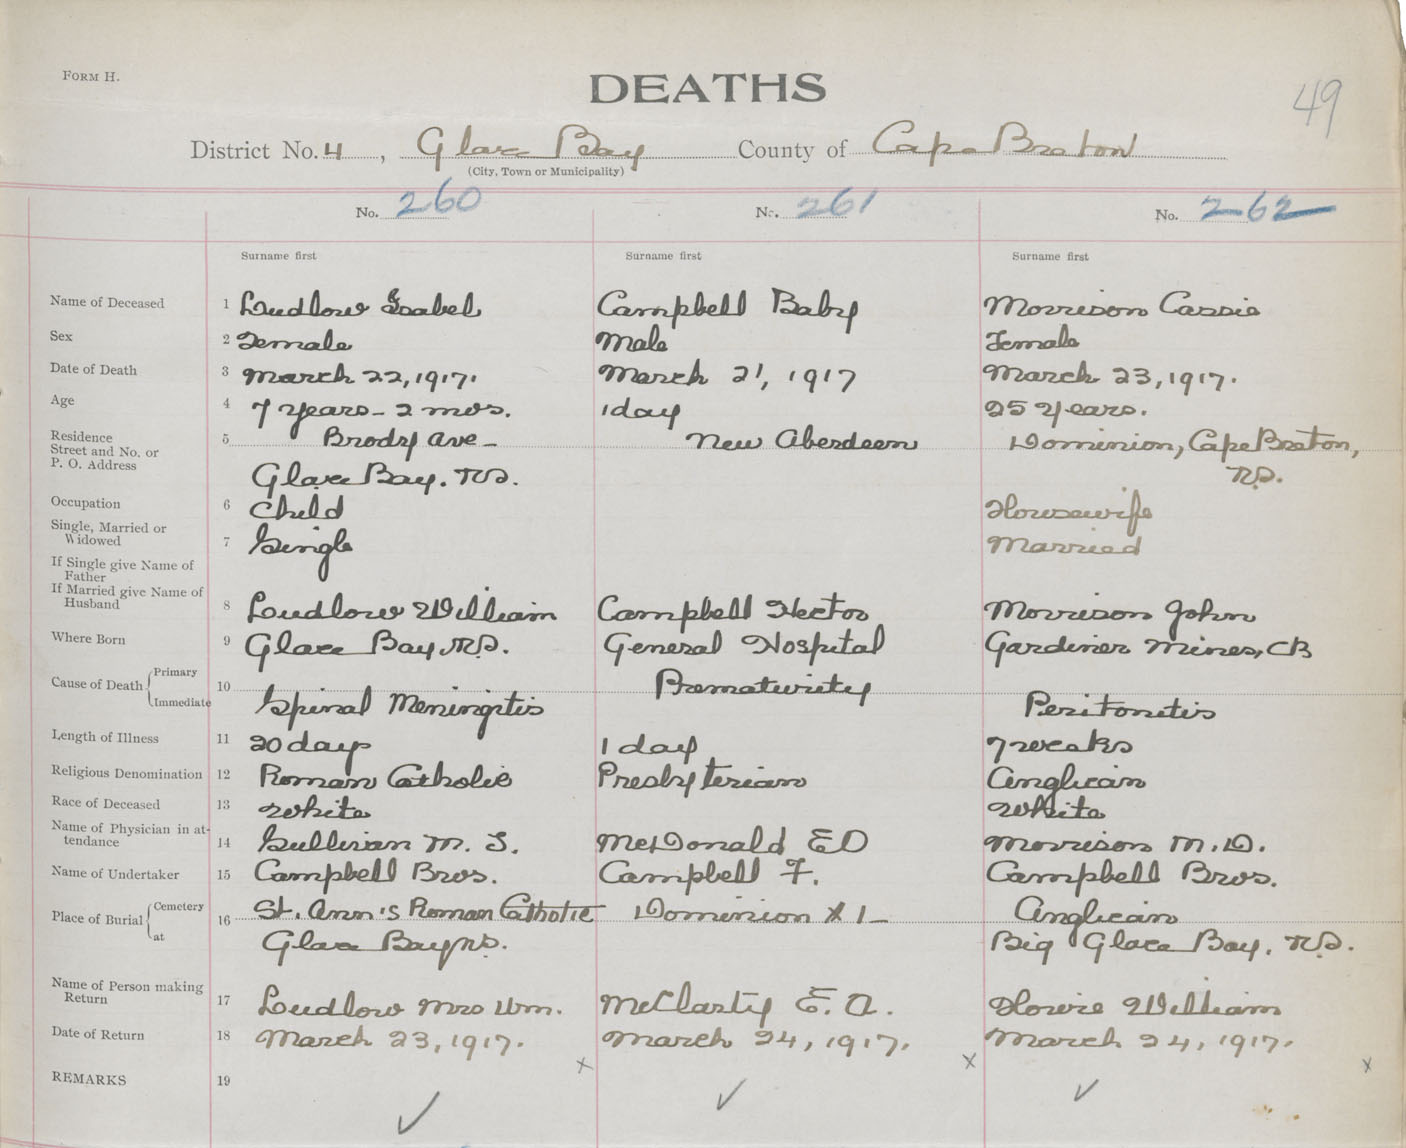 FORM H.
DEATHS
49
District No. 4, Glace Bay County of Cape Breton
(City, Town or Municipality)
No. 260 No. 261 No. 262
Surname first Surname first Surname first
Name of Deceased 1 Ludlow Isabel Campbell Baby Morrison Cassie
Sex 2 Female Male Female
Date of Death 3 March 22, 1917. March 21, 1917 March 23, 1917.
Age 4 7 years - 2 mos. 1 day 25 years.
Residence
Street and No. or 5 Brody Ave - New Aberdeen Dominion, Cape Breton,
P. O. Address Glace Bay. N.S. N.S.
Occupation 6 Child Housewife
Single, Married or
Widowed 7 Single Married
If Single give Name of
Father
If Married give Name of
Husband 8 Ludlow William Campbell Hector Morrison John
Where Born 9 Glace Bay, N.S. General Hospital Gardiner Mines, CB
Cause of Death { Primary
10 Prematurity
Immediate Spinal Meningitis Peritonitis
Length of Illness 11 20 days 1 day 7 weeks
Religious Denomination 12 Roman Catholic Presbyterian Anglican
Race of Deceased 13 White White
Name of Physician in at-
tendance 14 Sullivan M. S. McDonald ED Morrison M. D.
Name of Undertaker 15 Campbell Bros. Campbell F. Campbell Bros.
Place of Burial { Cemetery 16 St. Ann's Roman Catholic Dominion # 1 - Anglican
at Glace Bay NS. Big Glace Bay, N.S.
Name of Person making
Return 17 Ludlow Mrs Wm. McClasty E. A. Howie William
Date of Return 18 March 23, 1917. March 24, 1917. March 24, 1917.
x x x
REMARKS 19 ✓ ✓ ✓